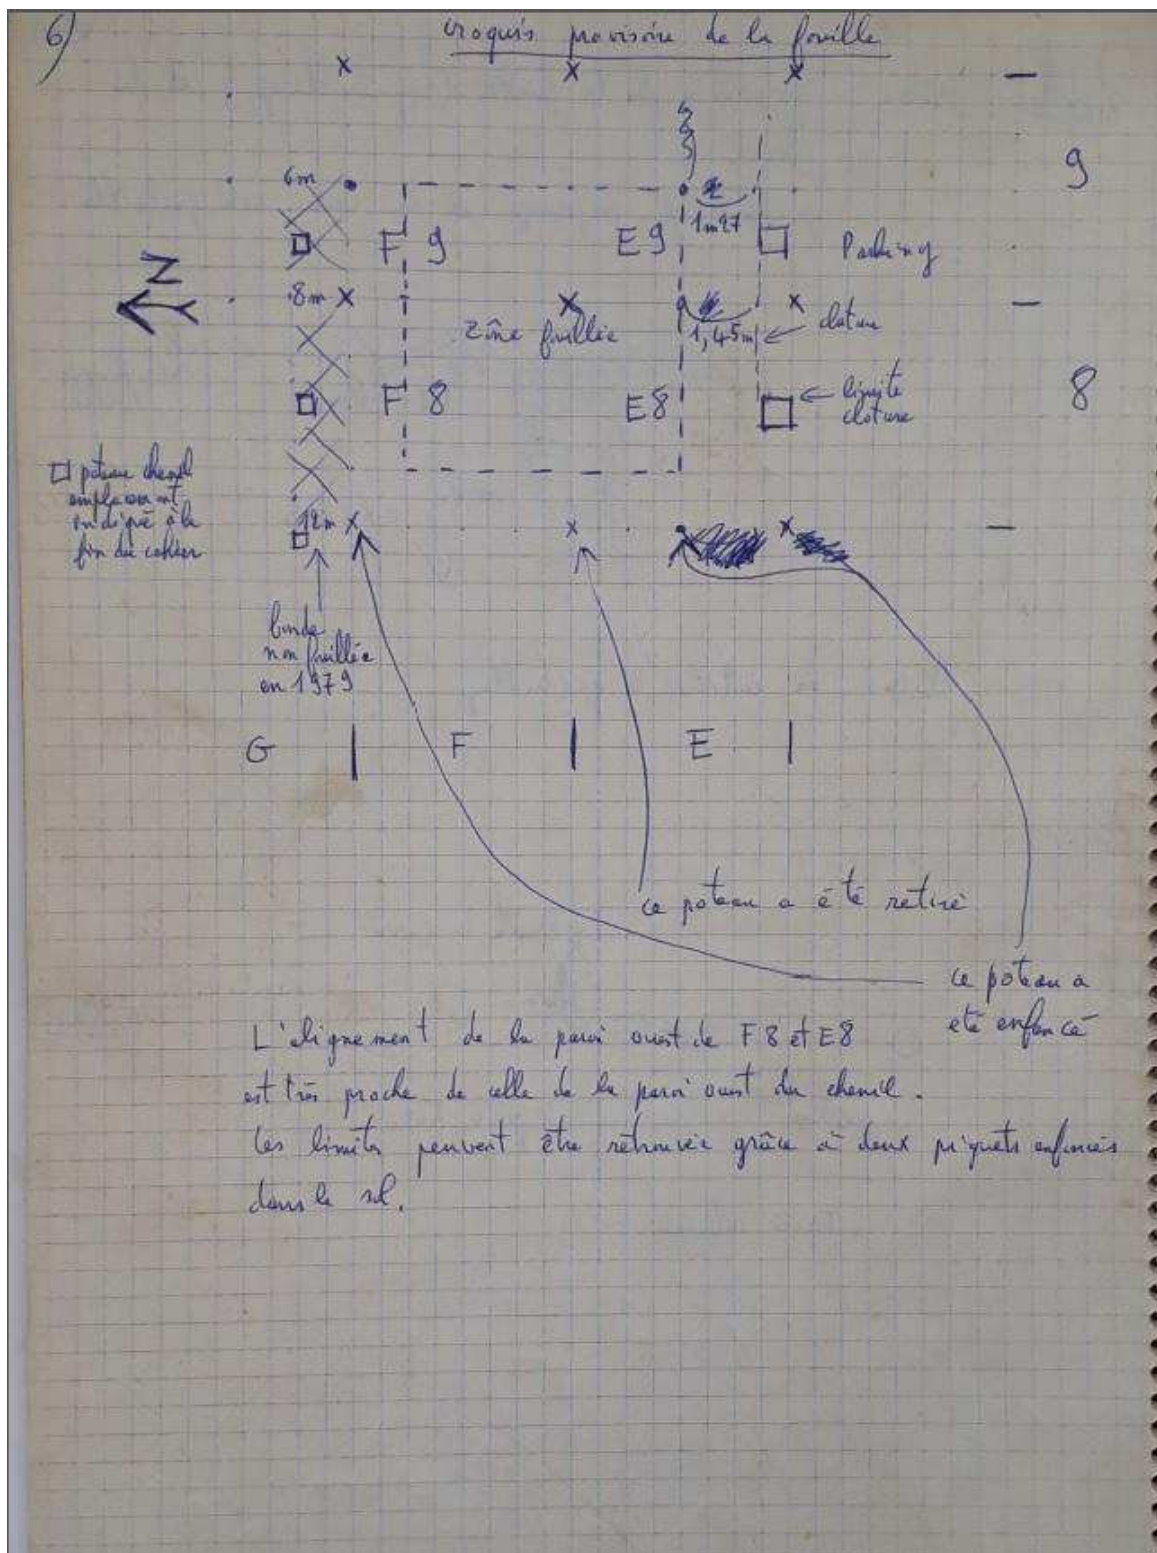 6)
croquis provisoire de la fouille
9
6m
1m27
F 9
E9
Parking
N
8m
Zône fouillée
1,45m
cloture
F 8
E8
limite
cloture
8
poteau chenil
emplacement
indiqué à la
fin du cahier
12m
bande
non fouillée
en 1979
G
F
E
ce poteau a été retiré
ce poteau a
été enfoncé
L'alignement de la paroi ouest de F8 et E8
est très proche de celle de la paroi ouest du chenil.
Les limites peuvent être retrouvée grâce à deux piquets enfoncés
dans le sol.